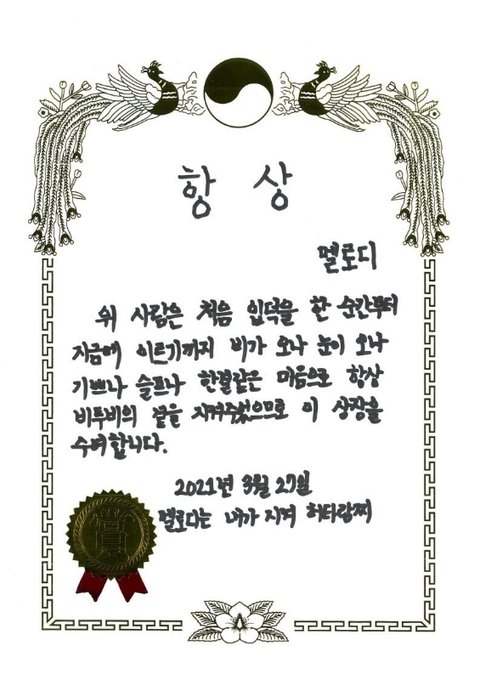 항 상
멜로디
위 사람은 처음 입덕을 한 순간부터
지금에 이르기까지 비가 오나 눈이 오나
기쁘나 슬프나 한결같은 마음으로 항상
비투비의 곁을 지켜주었으므로 이 상장을
수여합니다.
2021년 3월 27일
멜로디는 내가 지켜 허타랍찌
賞